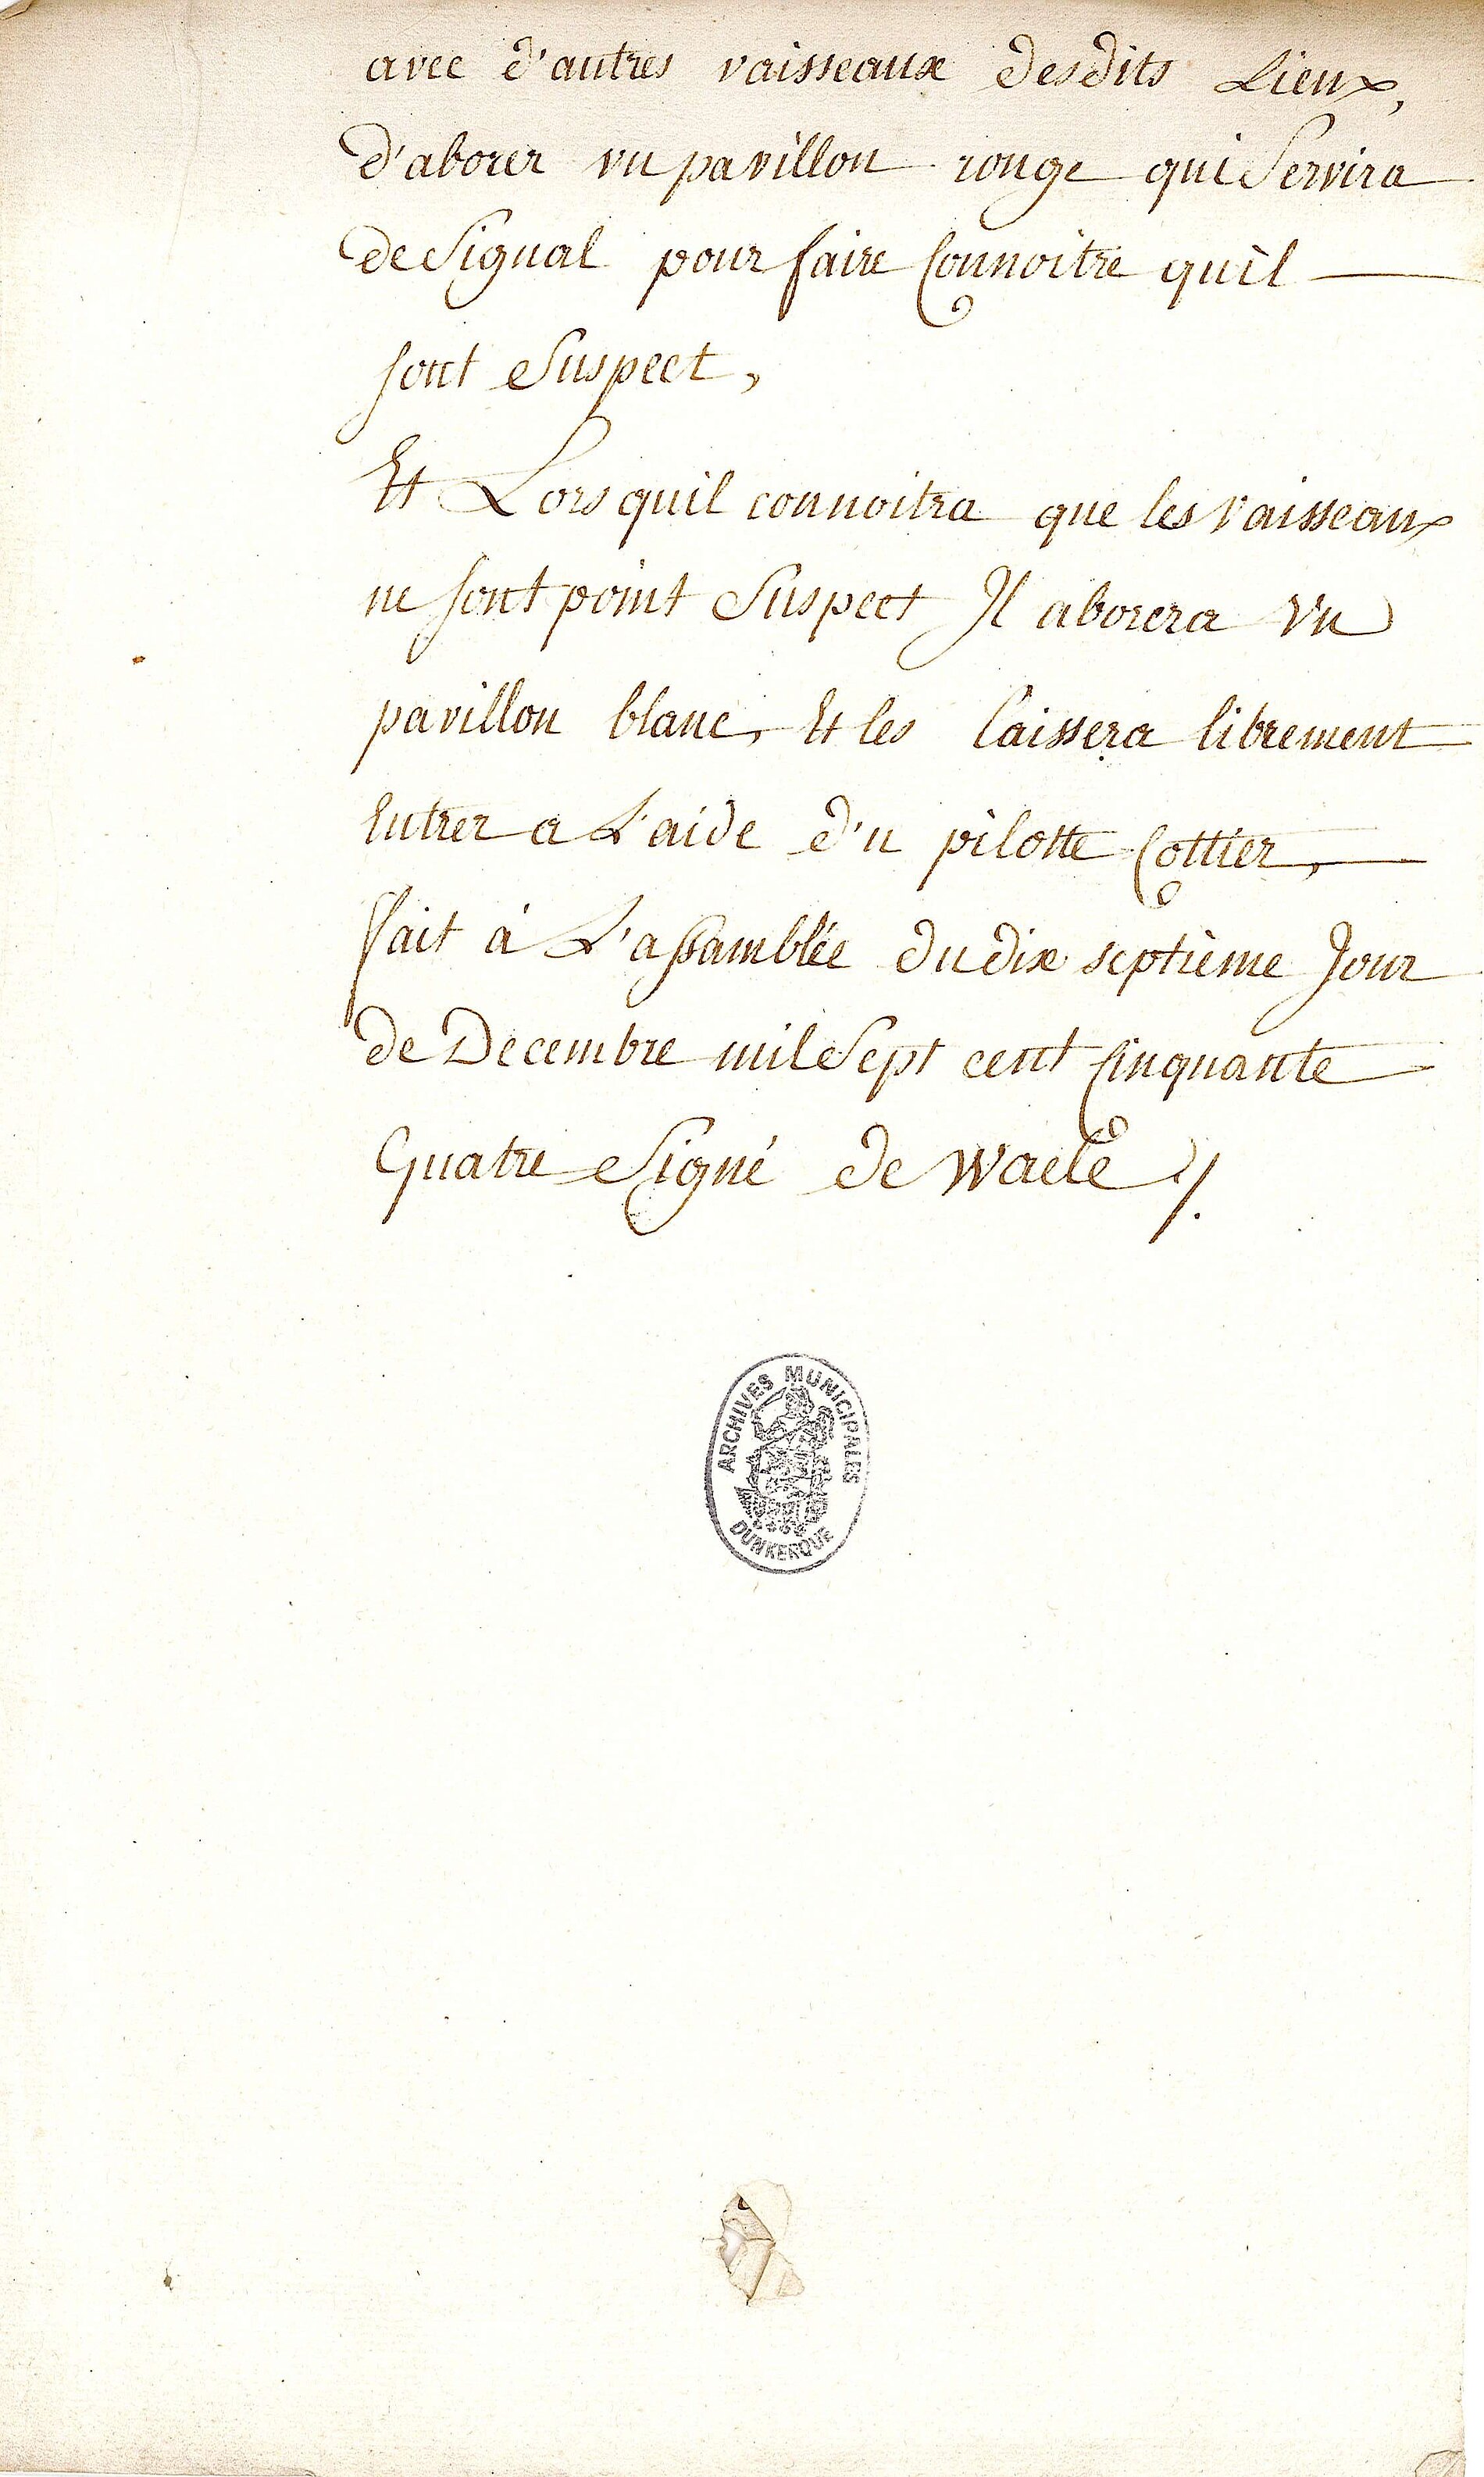 avec d'autres vaisseaux desdits Lieux,
d'aborer vn pavillon rouge qui Servira
de Signal pour faire Connoitre quil
sont Suspect,
Et Lors quil connoitra que les vaisseaux
ne sont point Suspect Il aborera vn
pavillon blanc, Et les laissera librement
Entrer a L'aide d'n pilotte Cottier,
fait à L'assamblée du dix septième Jour
de Decembre mil Sept cent Cinquante
Quatre Signé de Waele ./.
ARCHIVES MUNICIPALES
DUNKERQUE